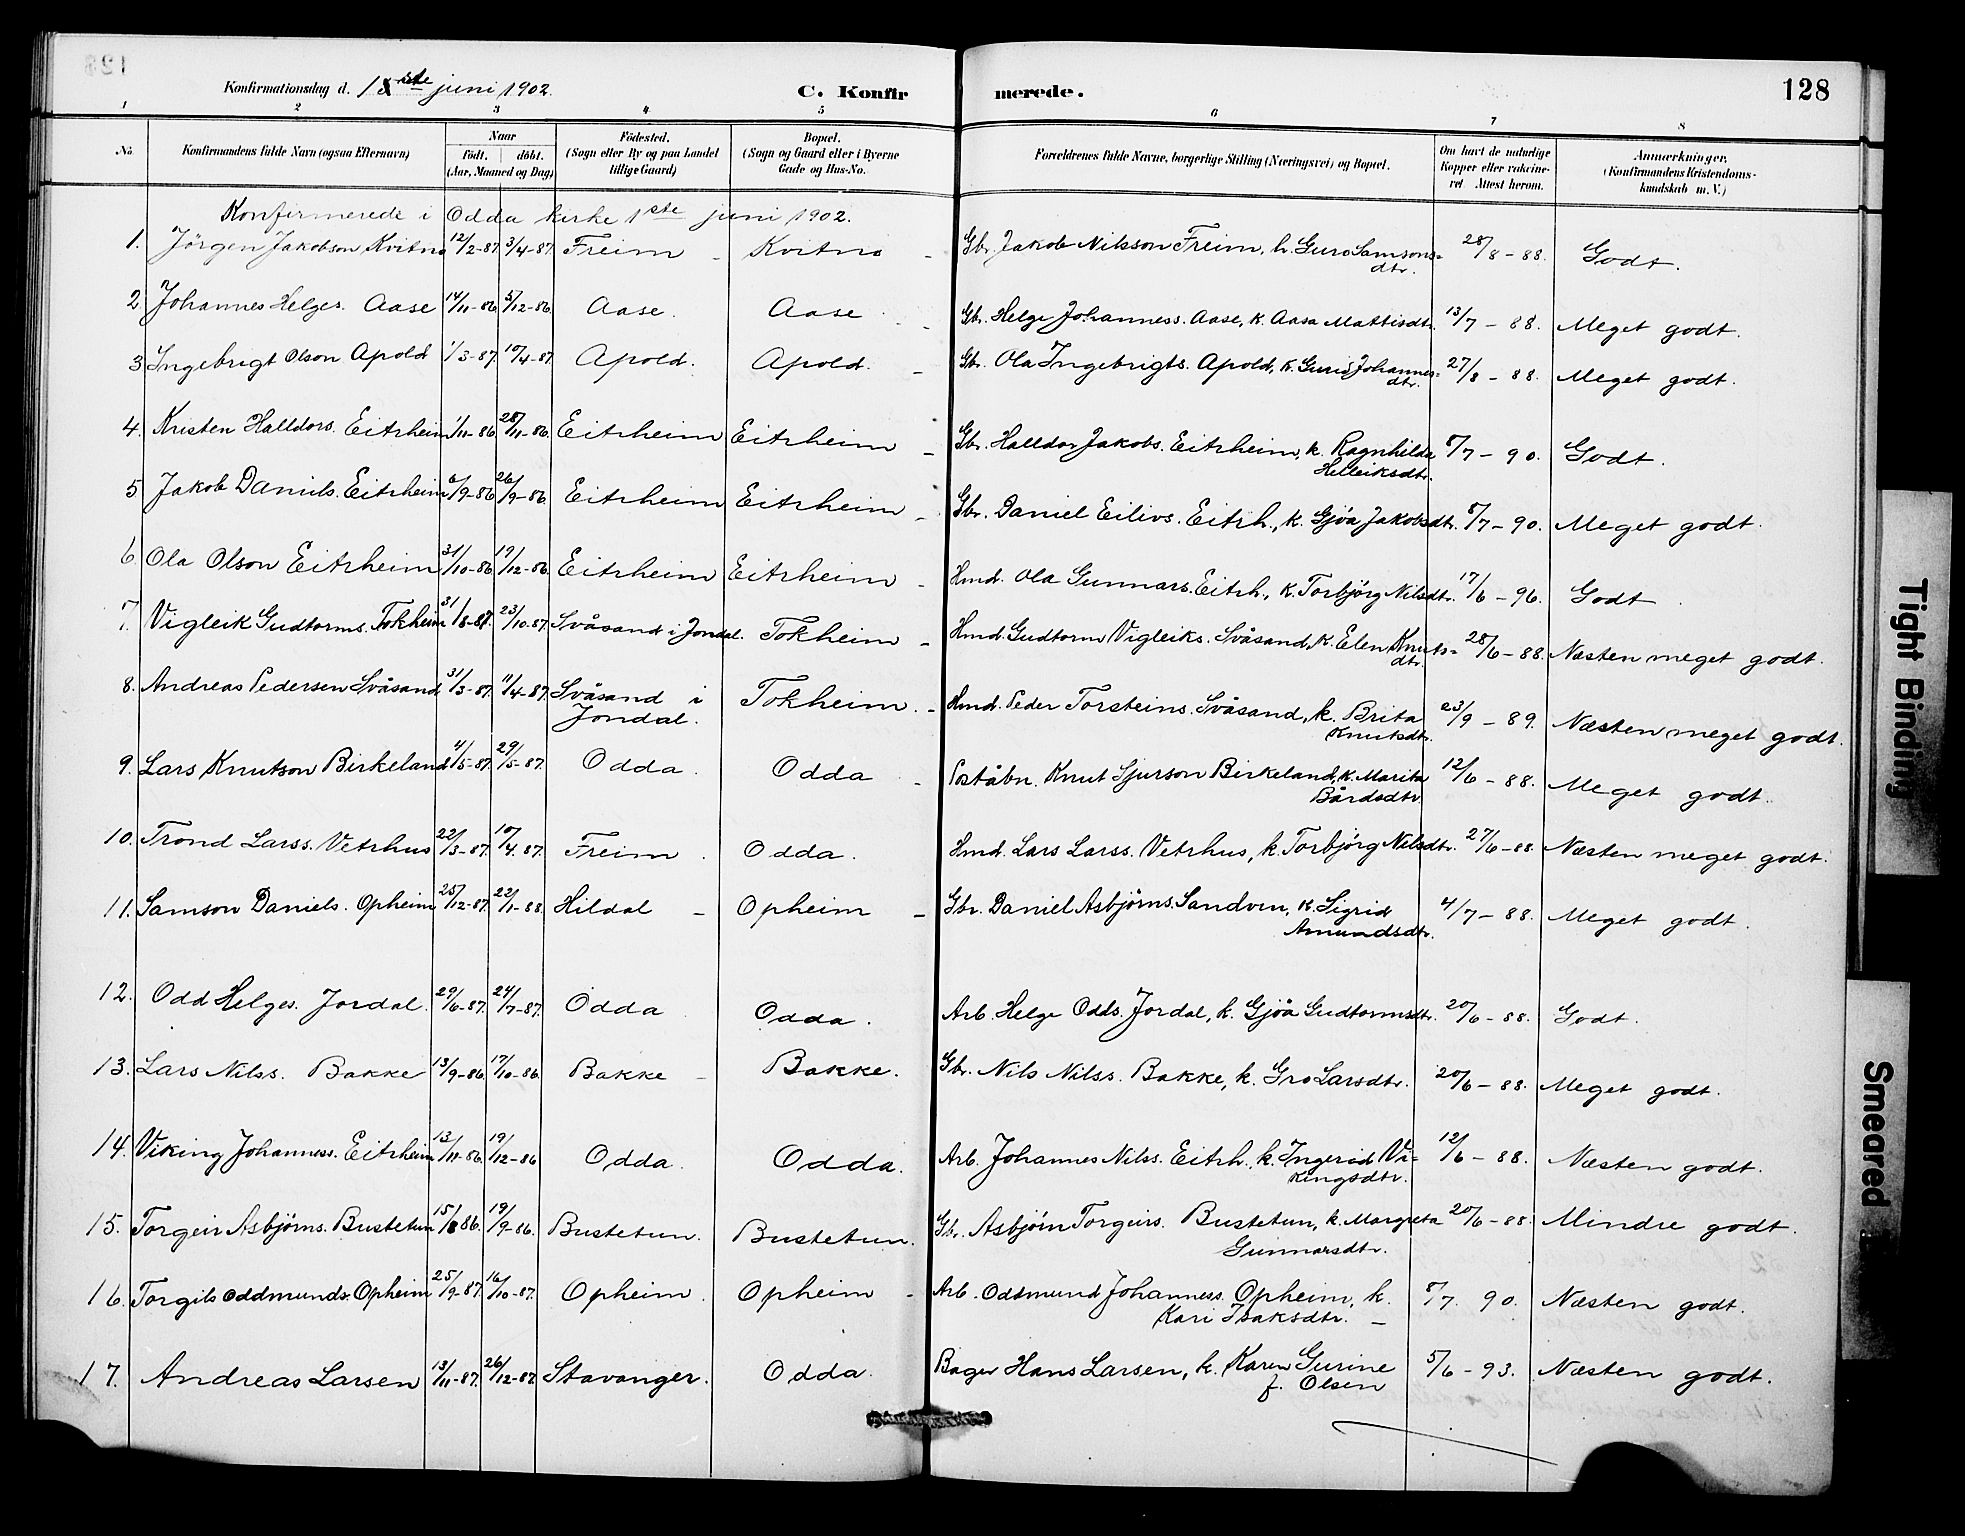 Konfirmationsdag d. 1ste juni 1902.
C. Konfirmerede.
128
1 2 3 4 5 6 7 8
No.
Konfirmandens fulde Navn (ogsaa Efternavn)
Naar
födt. döbt.
(Aar, Maaned og Dag)
Födested.
(Sogn eller By og paa Landet
tillige Gaard)
Bopæl.
(Sogn og Gaard eller i Byerne
Gade og Hus-No.
Forældrenes fulde Navne, borgerlige Stilling (Næringsvei) og Bopæl.
Om havt de naturlige
Kopper eller vakcine-
ret. Attest herom.
Anmærkninger,
(Konfirmandens Kristendoms-
kundskab m. V.)
Konfirmerede i Odda kirke 1ste juni 1902.
1. Jörgen Jakobson Kvitno 12/2-87. 3/4-87. Freim - Kvitno - Gbr. Jakob Nilsson Freim, h. Guro Samsons=
dtr. 28/8-88. Godt.
2. Johannes Helges. Aase 14/11-86. 5/12-86. Aase. Aase. - Gbr. Helge Johanness. Aase, k. Aasa Mattisdtr. 13/7-88. Meget godt.
3. Ingebrigt Olson Apold 1/3-87. 10/4-87. Apold. Apold. - Gbr. Ola Ingebrigts. Apold, k. Guri Johannes=
dtr. 27/8-88. Meget godt.
4. Kristen Halldors. Eitrheim 1/11-86. 28/11-86. Eitrheim Eitrheim - Gbr. Halldor Jakobs. Eitrheim, k. Ragnhilda
Helleiksdtr. 8/7-90. Godt.
5. Jakob Daniels. Eitrheim 6/9-86. 26/9-86. Eitrheim Eitrheim - Gbr. Daniel Eilivs. Eitrh., k. Gjöa Jakobsdtr. 8/7-90. Meget godt.
6. Ola Olson Eitrheim 31/10-86. 19/12-86. Eitrheim Eitrheim - Hmd. Ola Gunnars. Eitrh., k. Torbjörg Nilsdtr. 17/6-96. Godt.
7. Vigleik Gudtorms. Tokheim 31/8-87. 23/10-87. Svåsand i Jondal. Tokheim - Hmd. Gudtorm Vigleiks. Svåsand, k. Elen Knuts=
dtr. 28/6-88. Næsten meget godt.
8. Andreas Pedersen Svåsand 31/3-87. 11/4-87. Svåsand i
Jondal. Tokheim. - Hmd. Peder Torsteins. Svåsand, k. Brita
Knutsdtr. 23/9-89. Næsten meget godt.
9. Lars Knutson Birkeland 4/5-87. 29/5-87. Odda. Odda - Poståbn. Knut Sjurson Birkeland, k. Marita
Bårdsdtr. 12/6-88. Meget godt.
10. Trond Larss. Vetrhus 22/3-87. 10/4.87. Freim. Odda. Hmd. Lars Larss. Vetrhus, k. Torbjörg Nilsdtr. 27/6-88. Næsten meget godt.
11. Samson Daniels. Opheim 25/12-87. 22/1-88. Hildal - Opheim - Gbr. Daniel Asbjörns. Sandven, k. Sigrid
Amundsdtr. 4/7-88. Meget godt.
12. Odd Helges. Jordal. 29/6-87. 24/7-87. Odda Odda. Arb. Helge Odds. Jordal, k. Gjöa Gudtormsdtr. 20/6-88. Godt.
13. Lars Nilss. Bakke 13/9-86. 17/10-86. Bakke - Bakke. Gbr. Nils Nilss. Bakke, k. Gro Larsdtr. 20/6-88. Meget godt.
14. Viking Johanness. Eitrheim 13/11-86. 19/12-86 Odda. Odda. Arb. Johannes Nilss. Eitrh., k. Ingerid Vi=
kingsdtr. 12/6-88. Næsten godt.
15. Torgeir Asbjörns. Bustetun 15/8 86. 19/9-86. Bustetun. Bustetun. Gbr. Asbjörn Torgeirs. Bustetun, k. Margreta
Gunnarsdtr. 20/6-88. Mindre godt.
16. Torgils Oddmunds. Opheim 25/9-87. 16/10-87. Opheim. Opheim - Arb. Oddmund Johanness. Opheim, k.
Kari Isaksdtr. - 8/7. 90. Næsten godt.
17. Andreas Larsen 13/11-87. 26/12-87. Stavanger. Odda. Bager Hans Larsen, k. Karen Gurine
f. Olsen 5/6-93. Næsten godt.
Tight Binding
Smeared